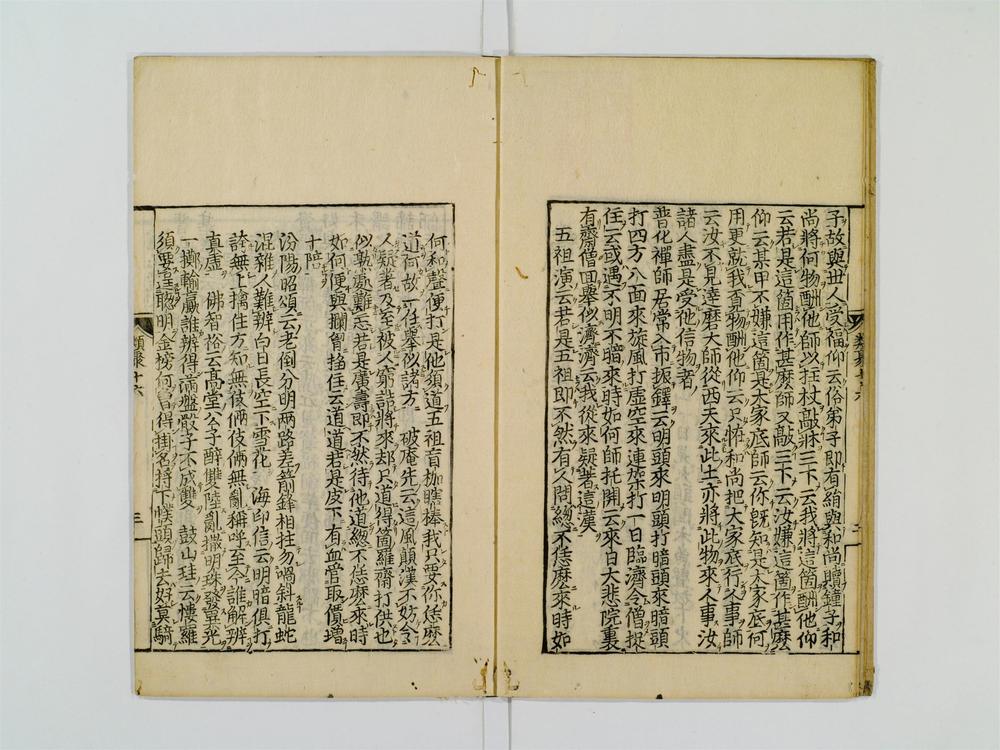 子故與世人受福仰云俗弟子即有絹與和尚贖鐘子和
尚將何物酬他師以拄杖敲牀三下云我將這箇酬他仰
云若是這箇用作甚麽師又敲三下云汝嫌這箇作甚麽
仰云某甲不嫌這箇是大家底師云你既知是大家底何
用更就我覓物酬他仰云只怪和尚把大家底行人事師
云汝不見達磨大師從西天來此土亦將此物來人事汝
諸人盡是受他信物者
普化禪師居常入市振鐸云明頭來明頭打暗頭來暗頭
打四方八面來旋風打虛空來連架打一日臨濟令僧捉
住云或遇不明不暗來時如何師托開云來日大悲院裏
有齋僧回舉似濟濟云我從來疑著這漢
五祖演云若是五祖即不然有人問總不恁麽來時如
類聚十六
二
何和聲便打是他須道五祖盲枷瞎棒我只要你恁麽
道何故一任舉似諸方　破庵先云這風顛漢不妨令
人疑著及至被人窮詰將來却只道得箇羅齋打供也
似熟處難忘若是廣壽即不然待他道總不恁麽來時
如何便與攔胷搊住云道道若是皮下有血管取價增
十陪
汾陽昭頌云老倒分明兩路差箭鋒相拄勿嗝斜龍蛇
混雜人難辨白日長空下雪花　海印信云明暗俱打
誇無上擒住方知無伎倆伎倆無亂稱呼至今誰解辨
真虛　佛智裕云高堂公子醉雙陸亂撒明珠發異光
一擲輸贏誰辨得滿盤骰子不成雙　鼓山珪云慺羅
須要逞聰明金榜何曾得掛名捋下幞頭歸去好莫騎
類聚十六
三